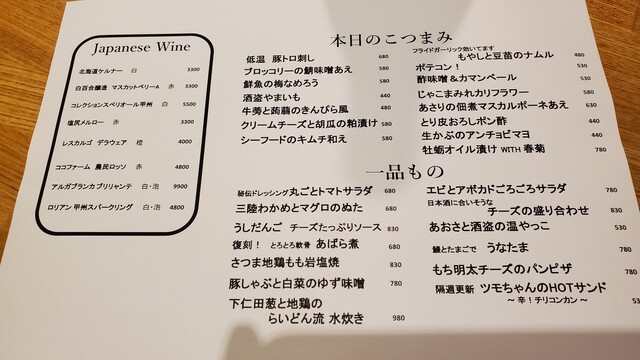 Japanese Wine
北海道ケルナー 白 3300
白百合醸造 マスカットベリーA 赤 3300
コレクションスペリオール甲州 白 5500
塩尻メルロー 赤 3300
レスカルゴ デラウェア 橙 4000
ココファーム 農民ロッソ 赤 4800
アルガブランカ ブリリャンテ 白・泡 9900
ロリアン 甲州スパークリング 白・泡 4800
本日のこつまみ
低温 豚トロ刺し 680
ブロッコリーの鯖味噌あえ 580
鮮魚の梅なめろう 580
酒盗やまいも 440
牛蒡と蒟蒻のきんぴら風 480
クリームチーズと胡瓜の粕漬け 580
シーフードのキムチ和え 580
フライドガーリック効いてます
もやしと豆苗のナムル 480
ポテコン! 530
酢味噌&カマンベール 530
じゃこまみれカリフラワー 580
あさりの佃煮マスカルポーネあえ 630
とり皮おろしポン酢 440
生かぶのアンチョビマヨ 440
牡蛎オイル漬け WITH 春菊 780
一品もの
秘伝ドレッシング 丸ごとトマトサラダ 680
三陸わかめとマグロのぬた 680
うしだんご チーズたっぷりソース 830
復刻! とろとろ軟骨 あばら煮 680
さつま地鶏もも岩塩焼 830
豚しゃぶと白菜のゆず味噌 780
下仁田葱と地鶏の
らいどん流 水炊き 980
エビとアボカドごろごろサラダ 780
日本酒に合いそうな
チーズの盛り合わせ 830
あおさと酒盗の温やっこ 530
鰻とたまごで うなたま 780
もち明太チーズのパンピザ 780
隔週更新 ツモちゃんのHOTサンド
～ 辛!チリコンカン ～ 53